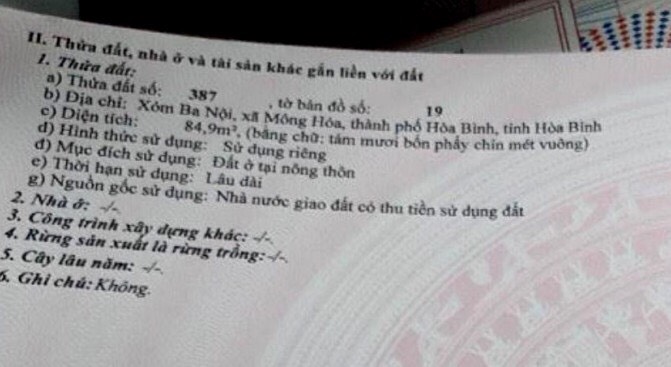 II. Thửa đất, nhà ở và tài sản khác gắn liền với đất
1. Thửa đất:
a) Thửa đất số: 387 , tờ bản đồ số: 19
b) Địa chỉ: Xóm Ba Nội, xã Mông Hóa, thành phố Hòa Bình, tỉnh Hòa Bình
c) Diện tích: 84,9m², (bằng chữ: tám mươi bốn phẩy chín mét vuông)
d) Hình thức sử dụng: Sử dụng riêng
đ) Mục đích sử dụng: Đất ở tại nông thôn
e) Thời hạn sử dụng: Lâu dài
g) Nguồn gốc sử dụng: Nhà nước giao đất có thu tiền sử dụng đất
2. Nhà ở: -/-.
3. Công trình xây dựng khác: -/-.
4. Rừng sản xuất là rừng trồng: -/-.
5. Cây lâu năm: -/-.
6. Ghi chú: Không.